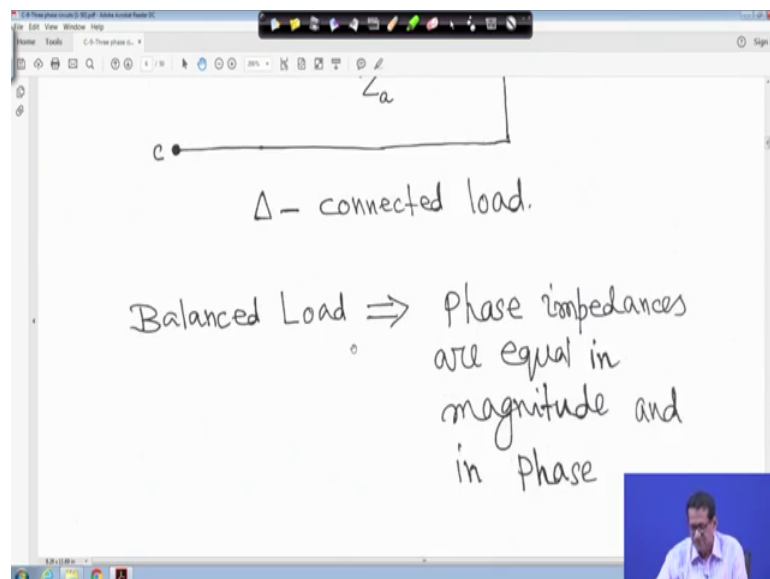 C-9-Three phase circuits [1-30].pdf - Adobe Acrobat Reader DC
File Edit View Window Help
Home Tools C-9-Three phase c... ×
Sign
Za
C
Δ - connected load.
Balanced Load ⇒ Phase impedances
are equal in
magnitude and
in phase